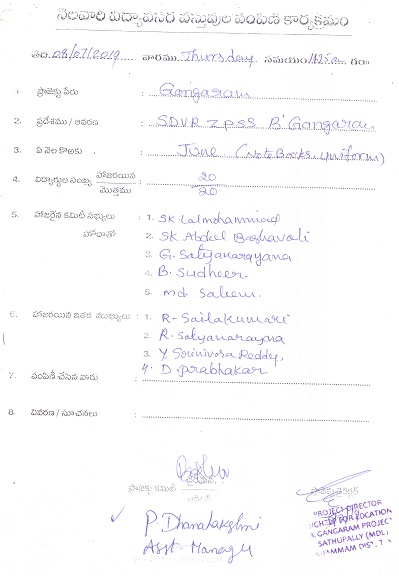 నెలవారి విద్యావసర వస్తువుల పంపిణి కార్యక్రమం
తేది 08/07/2019 వారము Thursday సమయం గం
1. ప్రాజెక్టు పేరు : Gangaram
2. ప్రదేశము / ఆవరణ : SDVR ZPSS B' Gangaram
3. ఏ నెల కొఱకు : June (NoteBooks uniform)
4. విద్యార్థుల సంఖ్య హాజరయిన : 20
మొత్తము 20
5. హాజరైన కమిటీ సభ్యులు : 1. SK Lalmohammad
హోదాతో 2. SK Abdeel
3. G. Satyanarayana
4. B. Sudheer.
5. md Saleem.
6. హాజరయిన ఇతర ముఖ్యులు : 1. R- Sailakumari
2. R. Satyanarayna
3. Y. Srinivasa Reddy,
4. D. prabhakar
7. పంపిణీ చేసిన వారు :
8. వివరణ / సూచనలు :
ప్రాజెక్టు కమిటీ
PROJECT DIRECTOR
FOR EDUCATION
B. GANGARAM PROJECT
SATHUPALLY (MDL)
P. Dhanalakshmi
Asst Manager